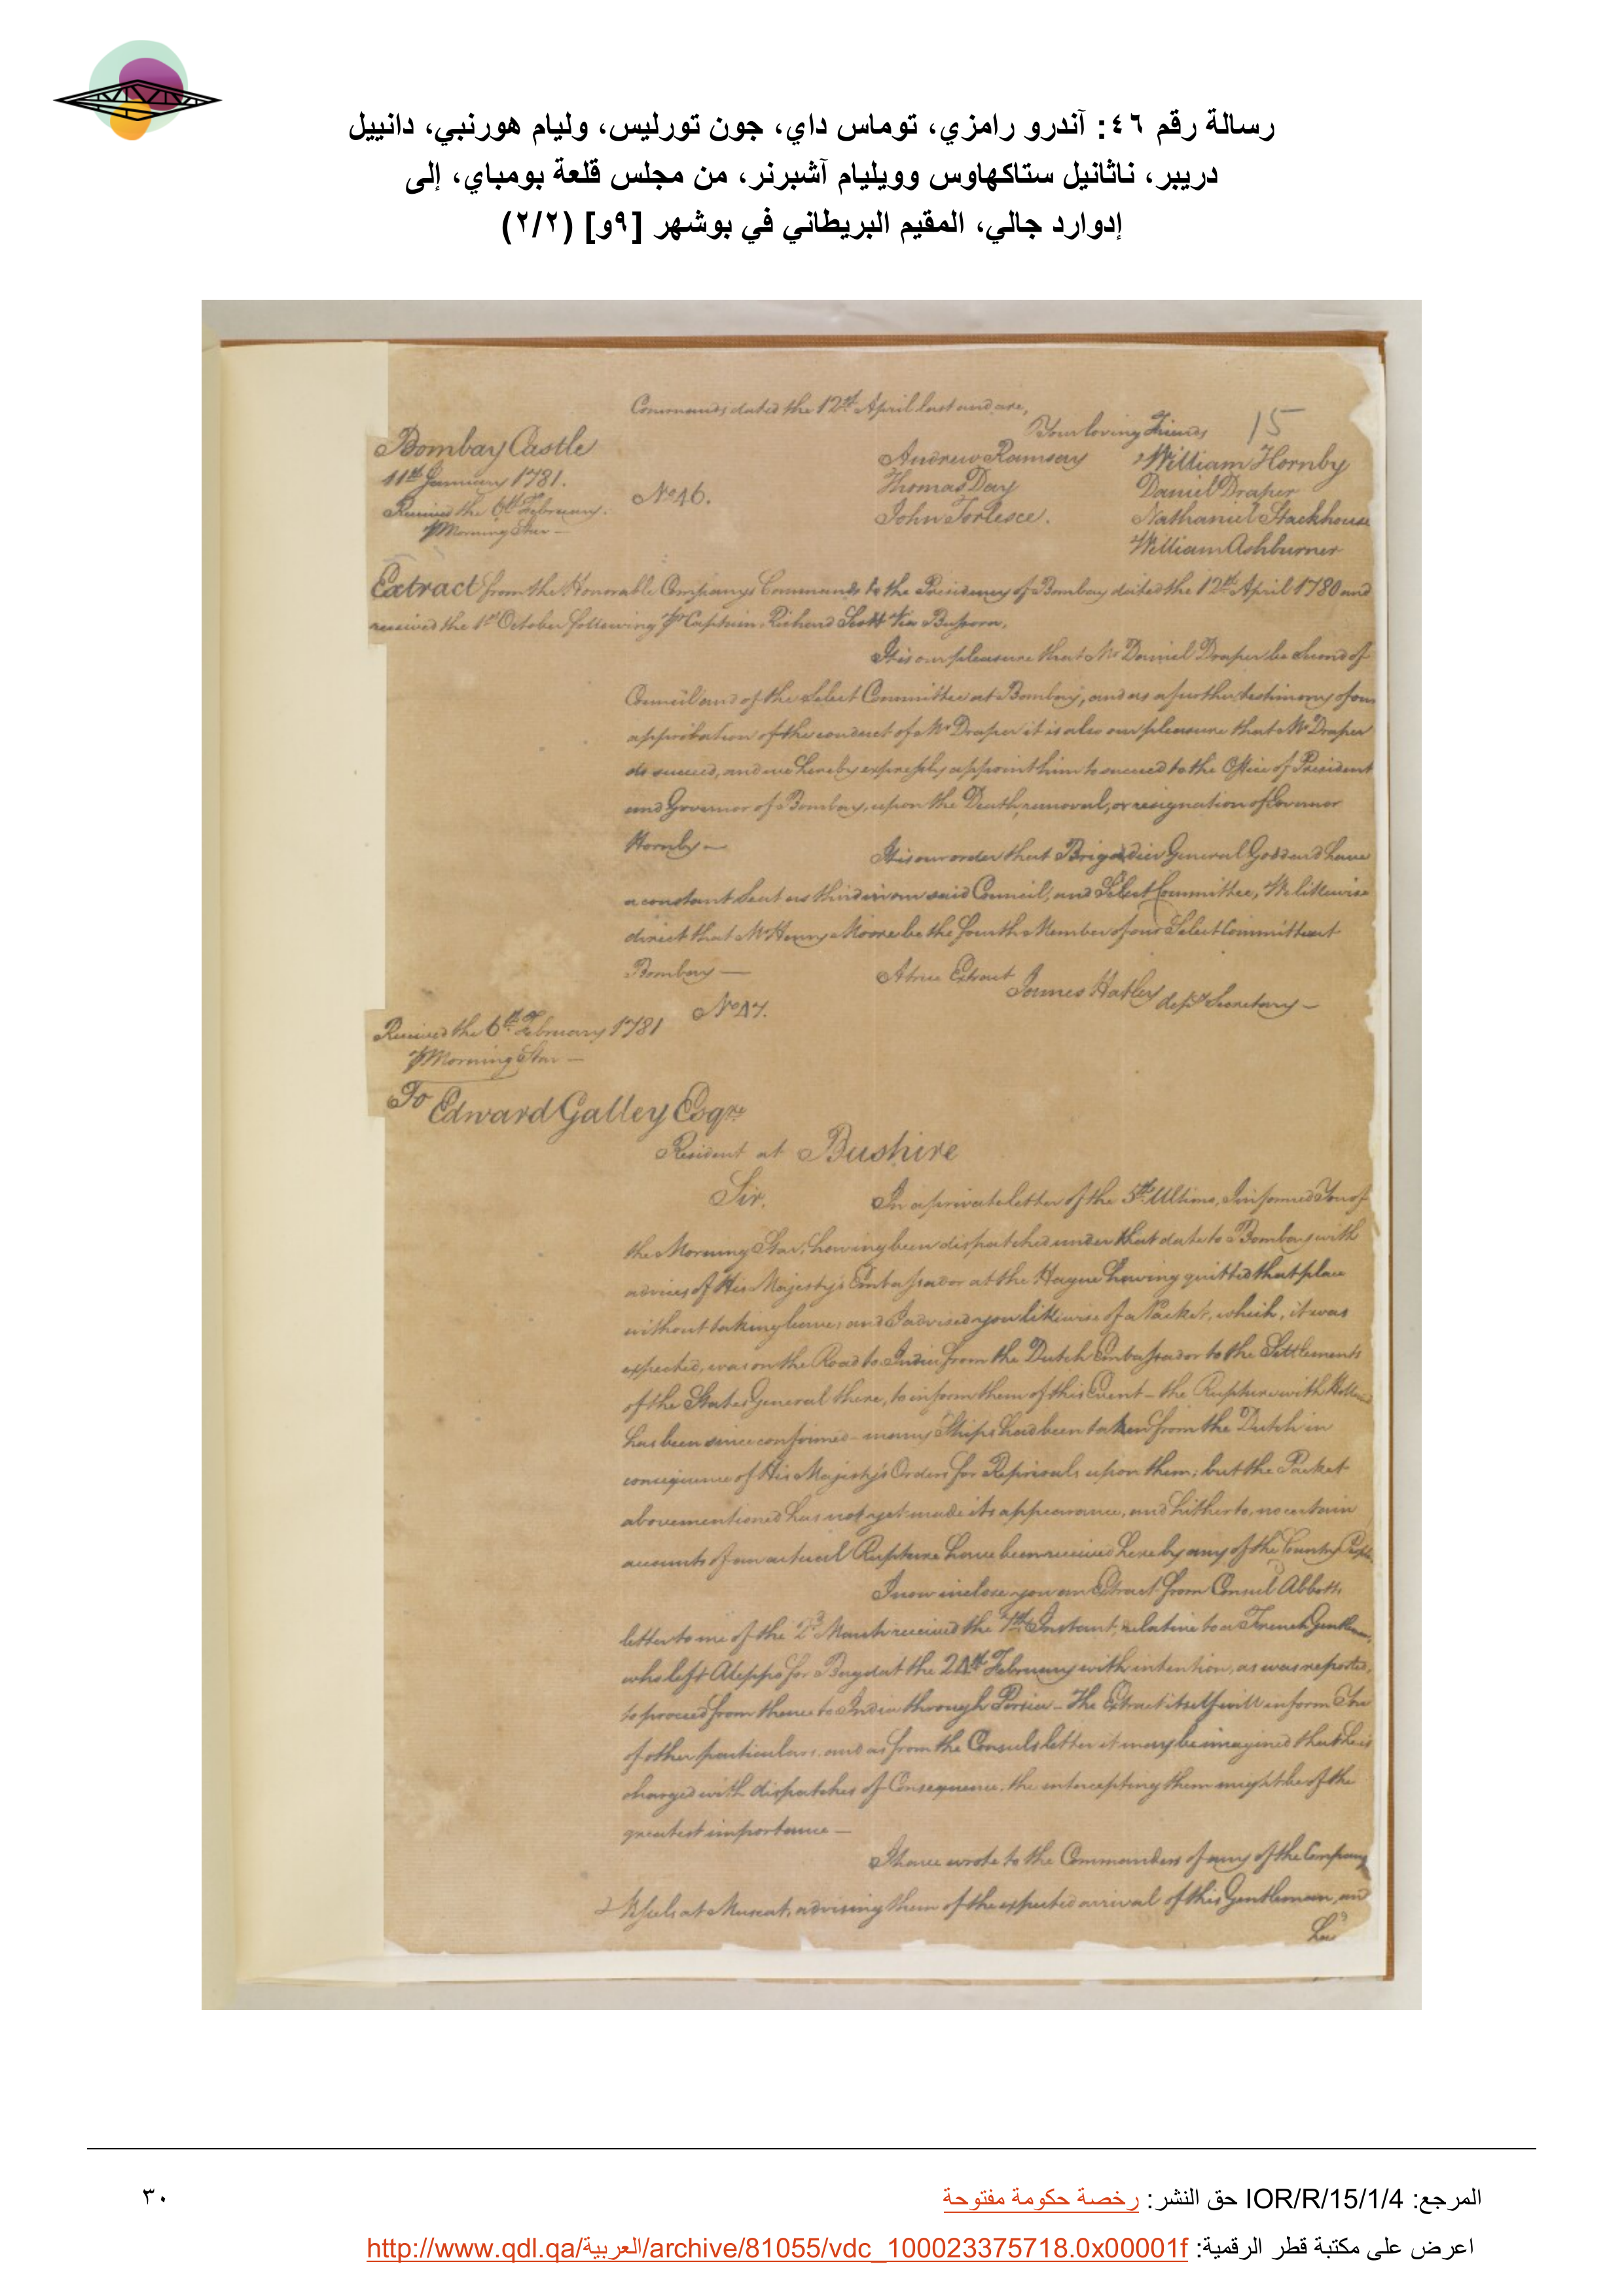 رسالة رقم ٤٦: آندرو رامزي، توماس داي، جون تورليس، وليام هورنبي، دانييل
دريبر، ناثانيل ستاكهاوس وويليام آشبرنر، من مجلس قلعة بومباي، إلى
إدوارد جالي، المقيم البريطاني في بوشهر [٩و] (٢/٢)
Commands dated the 12th April last and are,
Your loving Friends 15
Bombay Castle
11th January 1781.
Received the 6th February.
⅌ Morning Star —
No 46.
Andrew Ramsay
Thomas Day
John Torlesse.
William Hornby
Daniel Draper
Nathaniel Stackhouse
William Ashburner
Extract from the Honorable Company's Commands to the Presidency of Bombay dated the 12th April 1780 and
received the 1st October following ⅌ Captain Richard Scott Via Bussora.
It is our pleasure that Mr Daniel Draper be Second of
Council and of the Select Committee at Bombay, and as a further testimony of our
approbation of the conduct of Mr Draper it is also our pleasure that Mr Draper
do succeed, and we hereby expressly appoint him to succeed to the Office of President
and Governor of Bombay, upon the Death, removal, or resignation of Governor
Hornby —
It is our order that Brigadier General Goddard have
a constant Seat as third in our said Council, and Select Committee, We likewise
direct that Mr Henry Moore be the fourth Member of our Select Committee at
Bombay —
A true Extract
James Hatley depy Secretary —
No 47.
Received the 6th February 1781
⅌ Morning Star —
To Edward Galley Esqre
Resident at Bushire
Sir.
In a private letter of the 5th Ultimo, I informed You of
the Morning Star, having been dispatched under that date to Bombay with
advices of His Majesty's Embassador at the Hague having quitted that place
without taking leave; and I advised you likewise of a Packet, which, it was
expected, was on the Road to India from the Dutch Embassador to the Settlements
of the States General there, to inform them of this Event – the Rupture with Holland
has been since confirmed – many Ships had been taken from the Dutch in
consequence of His Majesty's Orders for Reprisals upon them; but the Packet
abovementioned has not yet made its appearance, and hitherto, no certain
accounts of an actual Rupture have been received here by any of the Country People.
I now inclose you an Extract from Consul Abbotts
letter to me of the 2d March received the 7th Instant, relative to a French Gentleman,
who left Aleppo for Bagdat the 24th February with intention, as was reported,
to proceed from thence to India through Persia – The Extract itself will inform You
of other particulars, and as from the Consuls letter it may be imagined that he is
charged with dispatches of Consequence, the intercepting them might be of the
greatest importance —
I have wrote to the Commanders of any of the Company
Vessels at Muscat, advising them of the expected arrival of this Gentleman, and
المرجع: IOR/R/15/1/4 حق النشر: رخصة حكومة مفتوحة
٣٠
اعرض على مكتبة قطر الرقمية: http://www.qdl.qa/العربية/archive/81055/vdc_100023375718.0x00001f